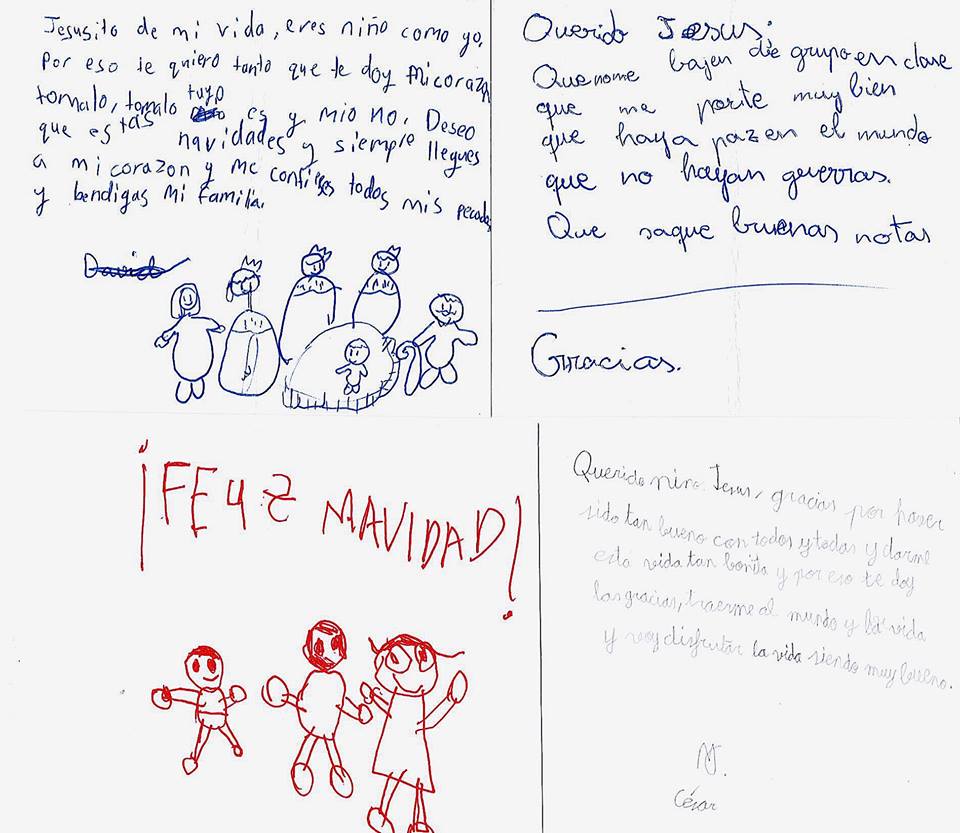 Jesusito de mi vida, eres niño como yo,
Por eso te quiero tanto que te doy mi corazon
tomalo, tomalo tuyo es y mio no. Deseo
que estas navidades y siempre llegues
a mi corazon y me confieses todos mis pecados
y bendigas mi familia.
David
Querido Jesus:
Que no me bajen de grupo en clase
que me porte muy bien
que haya paz en el mundo
que no hayan guerras.
Que saque buenas notas
Gracias.
¡FELIZ NAVIDAD!
Querido niño Jesus, gracias por haver
sido tan bueno con todos y todas y darme
esta vida tan bonita y por eso te doy
las gracias, traerme al mundo y la vida
y voy disfrutar la vida siendo muy bueno.
César